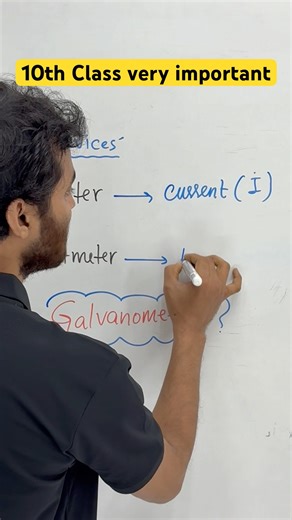 10th Class very important
vices
ter → current (I)
meter →
Galvanome ?